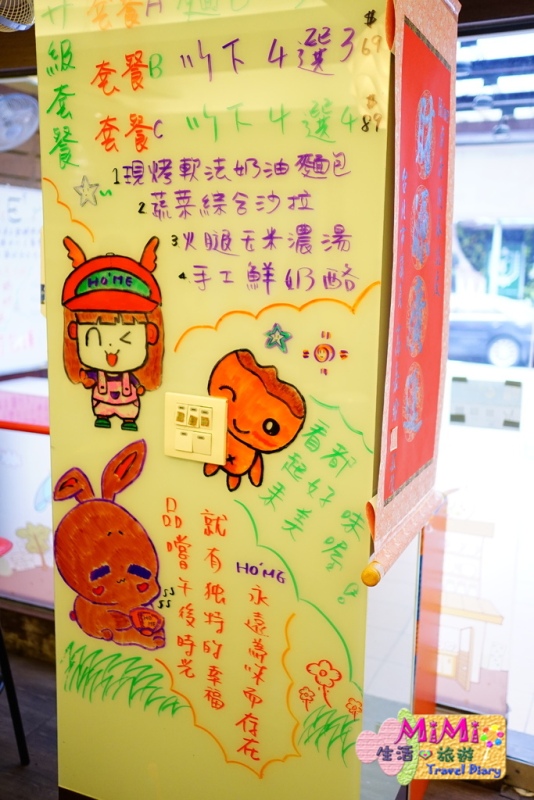 升級套餐
套餐A
套餐B 以下4選3 $69
套餐C 以下4選4 $89
1現烤軟法奶油麵包
2蔬菜綜合沙拉
3火腿玉米濃湯
4手工鮮奶酪
HO'ME
看都
起好
來美
味喔。
HO'ME
永遠為味而存在
就有独特的幸福
品嚐午後時光
zz
zz
MiMi
生活 旅遊
Travel Diary